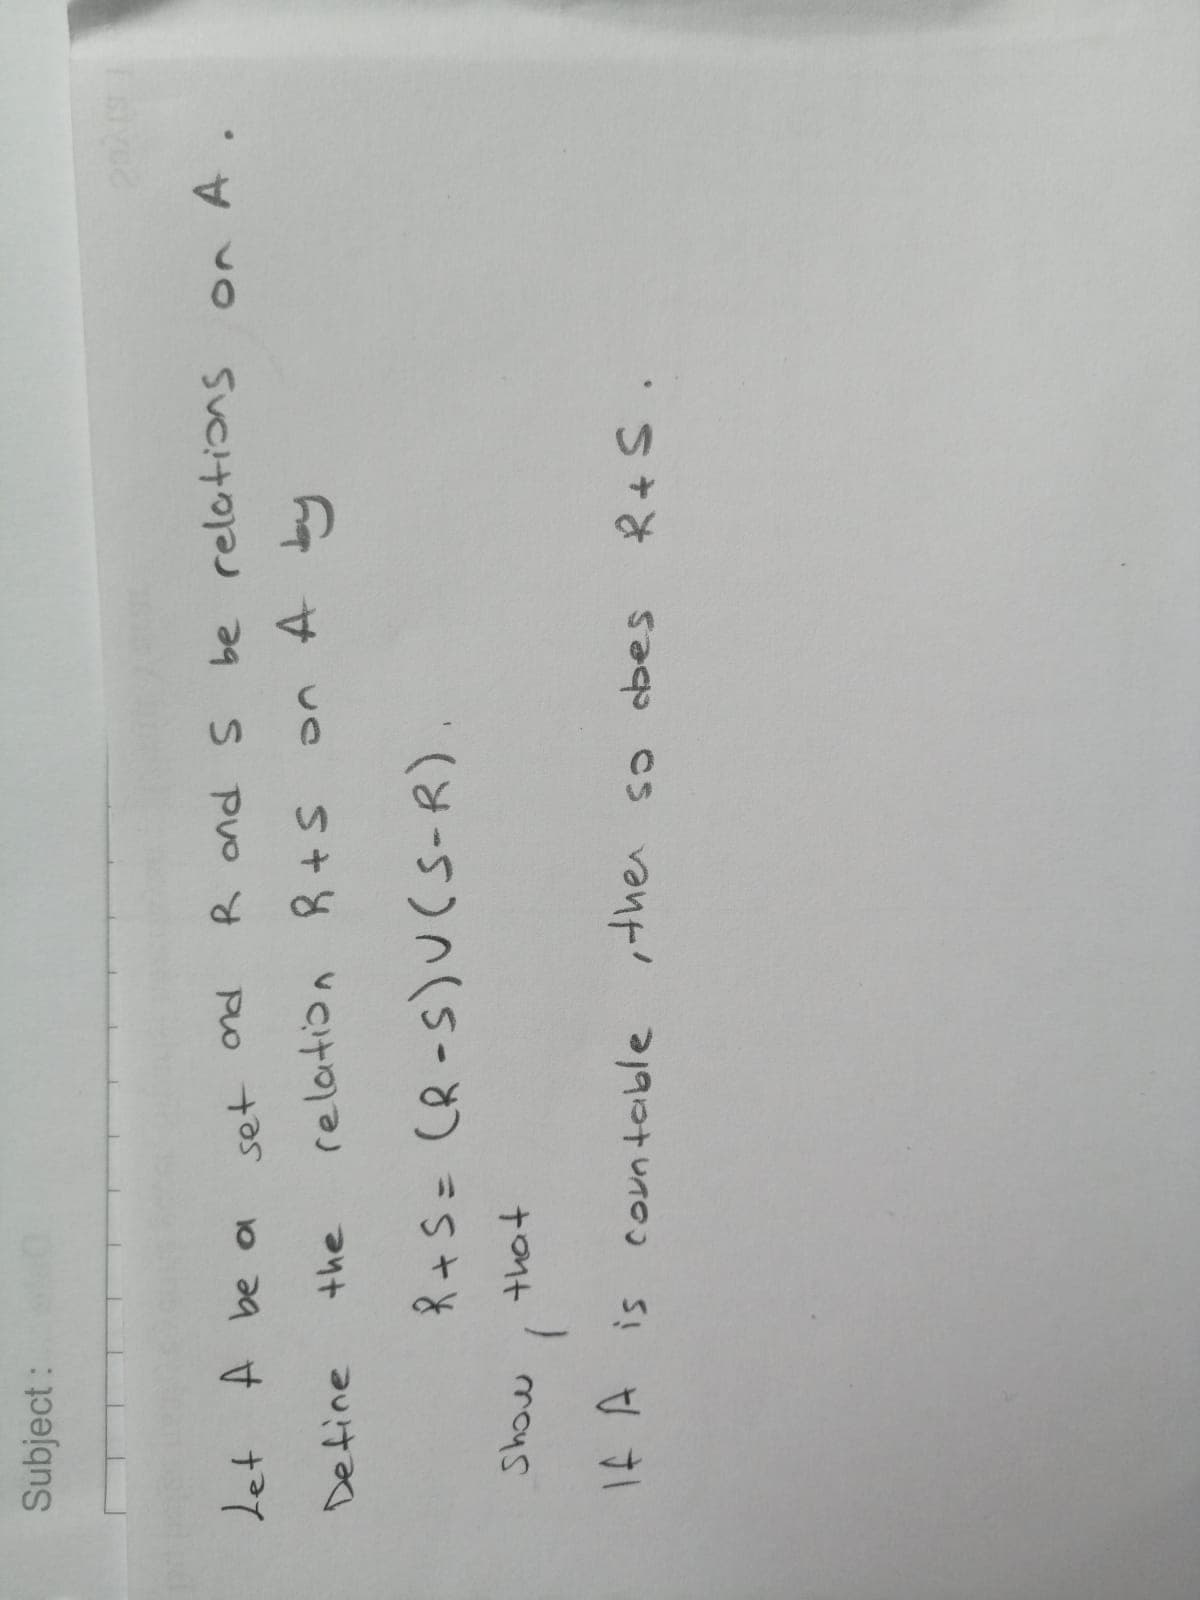 Subject:
Let A be a set and R and S be relations on A.
Define the relation R+S on A by
R+S = (R-S)∪(S-R).
Show, that
If A is countable, then so does R+S.